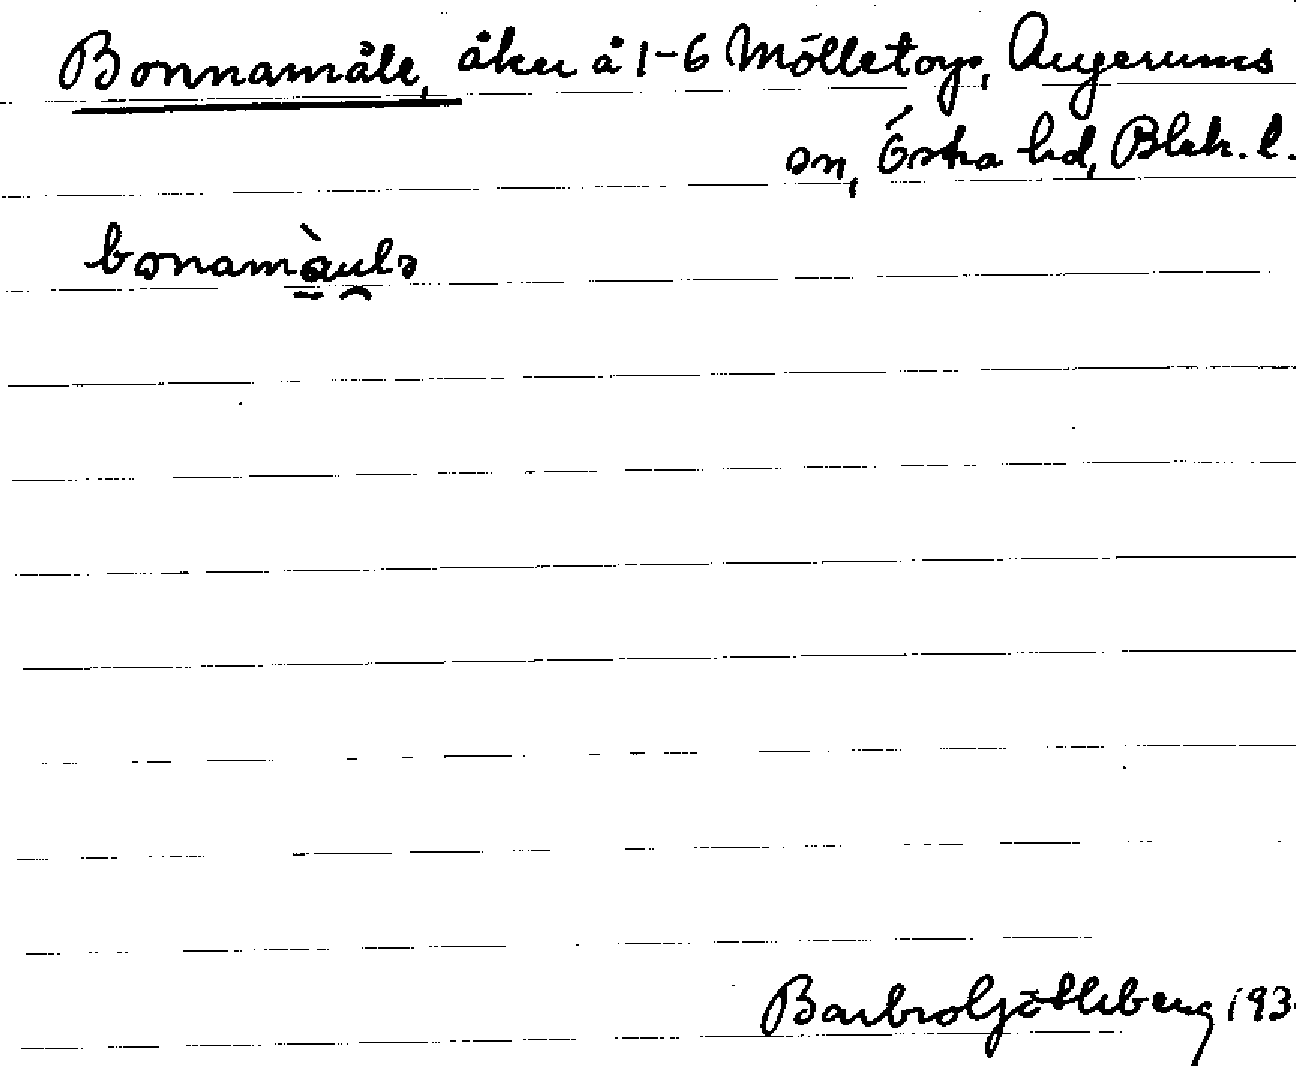 Bonnamåle, åker å 1-6 Mölletorp, Augerums
sn, Östra hd, Blek. l.
bonamàulə
Barbro Götlkberg 193